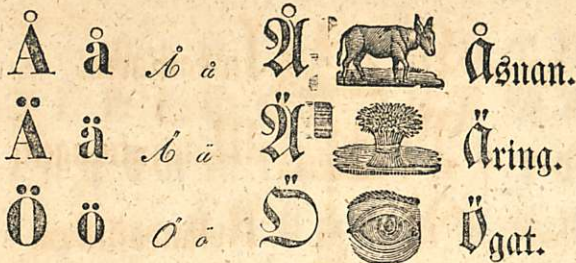 Å å Å å Å Åsnan.
Ä ä Ä ä Ä Äring.
Ö ö Ö ö Ö Ögat.